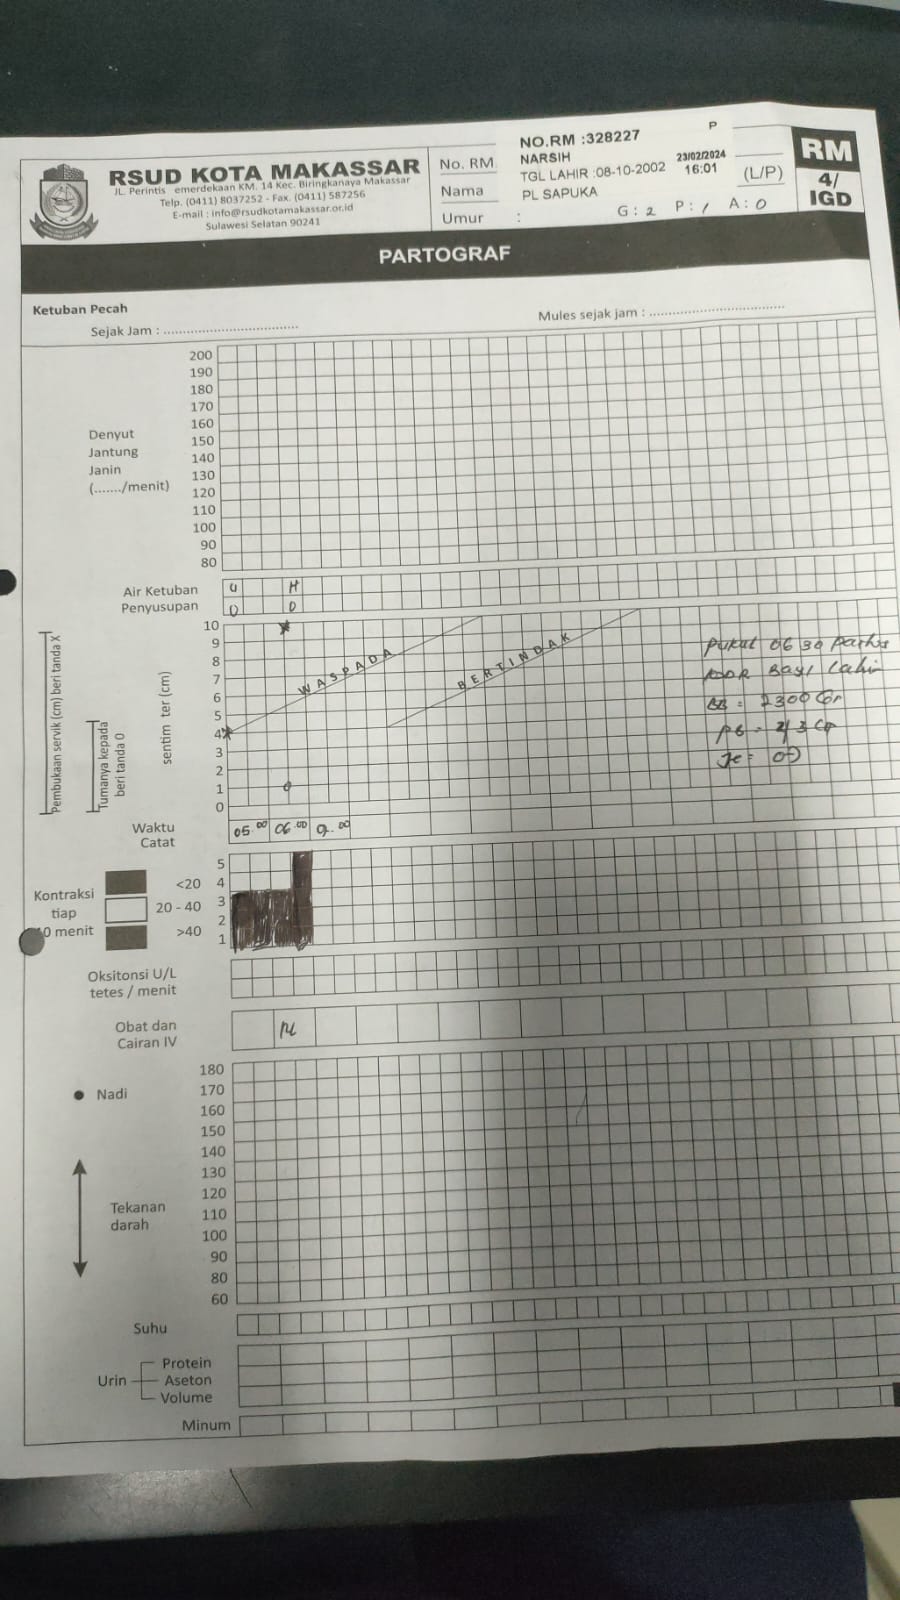 RSUD KOTA MAKASSAR
JL. Perintis emerdekaan KM. 14 Kec. Biringkanaya Makassar
Telp. (0411) 8037252 - Fax. (0411) 587256
E-mail : info@rsudkotamakassar.or.id
Sulawesi Selatan 90241
No. RM
Nama
Umur :
NO.RM :328227 P
NARSIH 23/02/2024
TGL LAHIR :08-10-2002 16:01
PL SAPUKA
(L/P)
G : 2 P : 1 A : 0
RM
4/
IGD
PARTOGRAF
Ketuban Pecah
Sejak Jam :
Mules sejak jam :
Denyut
Jantung
Janin
(......./menit)
200
190
180
170
160
150
140
130
120
110
100
90
80
Air Ketuban U H
Penyusupan 0 0
Pembukaan servik (cm) beri tanda X
Tumanya kepada
beri tanda O
sentim ter (cm)
10
9
8
7
6
5
4
3
2
1
0
WASPADA
BERTINDAK
Pukul 06 30 Partus
Bayi Lahir
BB = 2300 Gr
Waktu
Catat
05.00 06.00
Kontraksi
tiap
10 menit
<20
20 - 40
>40
5
4
3
2
1
Oksitonsi U/L
tetes / menit
Obat dan
Cairan IV
Nadi
Tekanan
darah
180
170
160
150
140
130
120
110
100
90
80
60
Suhu
Urin
Protein
Aseton
Volume
Minum